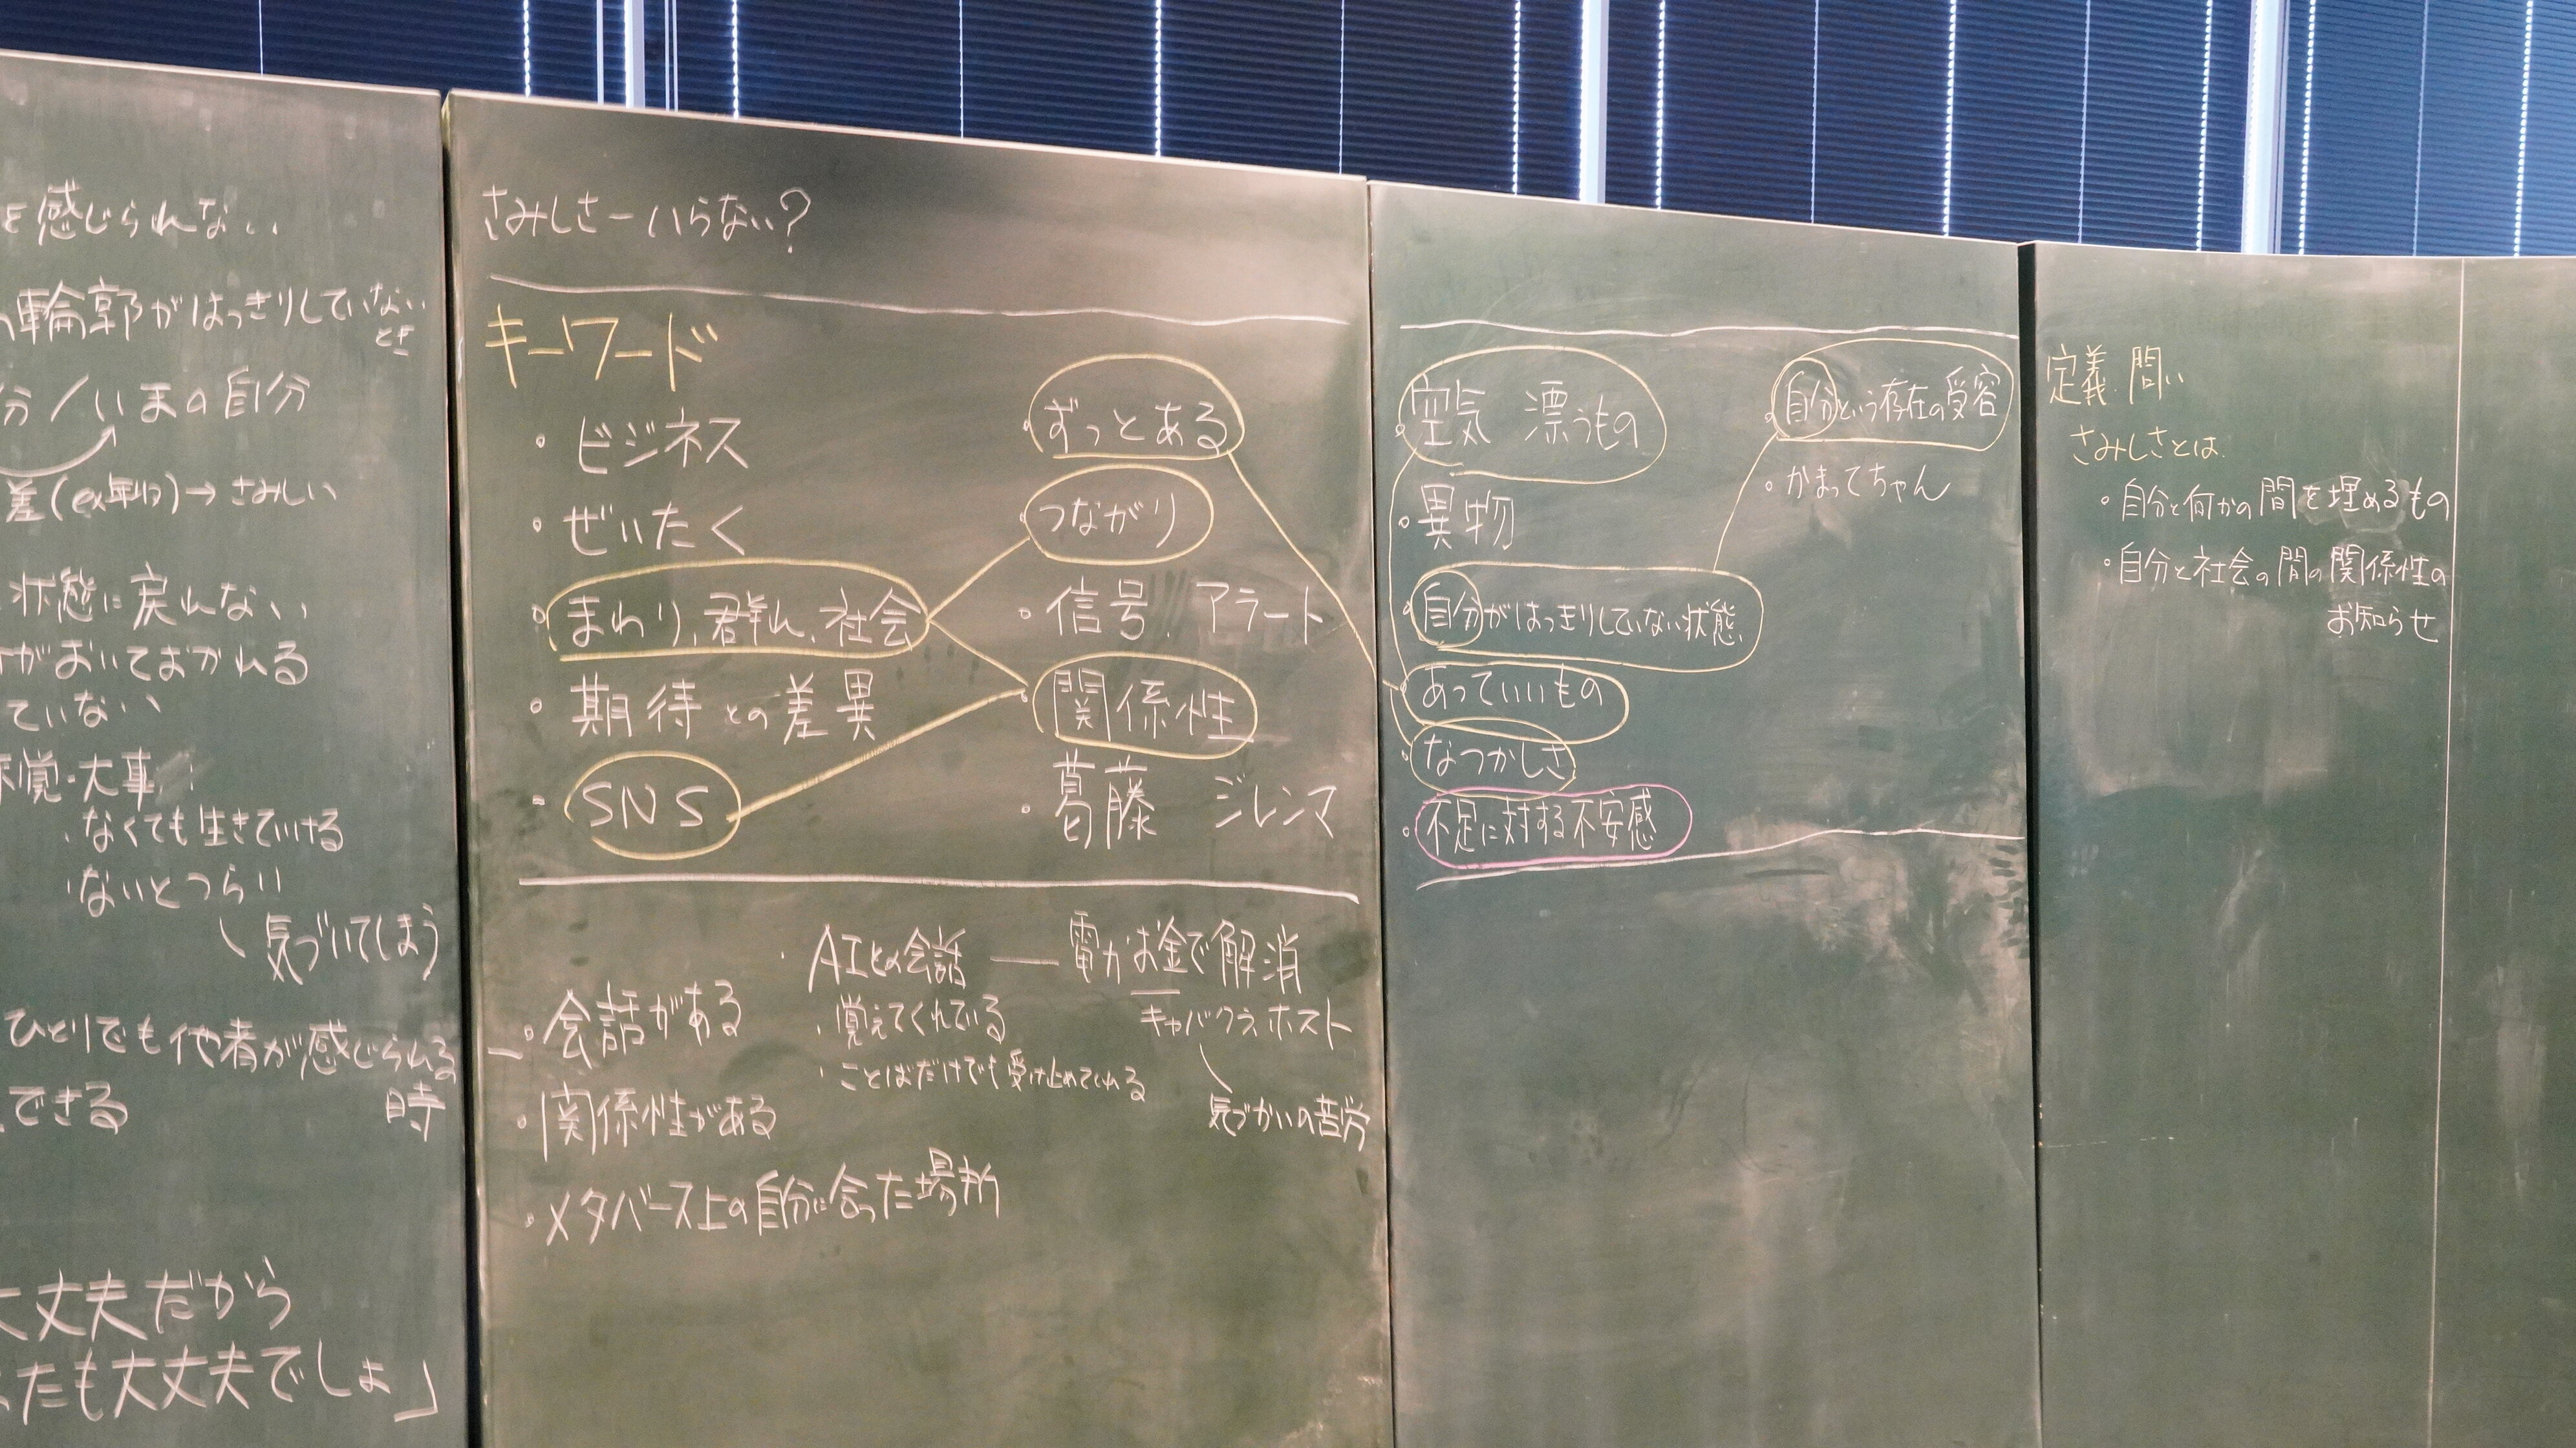 を感じられない
輪郭がはっきりしていない
とき
分／いまの自分
差(ex年収)→さみしい
状態に戻れない
がおいておかれる
ていない
覚・大事
・なくても生きていける
・ないとつらい
気づいてしまう
ひとりでも他者が感じられる
できる 時
丈夫だから
たも大丈夫でしょ」
さみしさーいらない？
キーワード
・ビジネス
・ぜいたく
・まわり、群れ、社会
・期待との差異
・SNS
・ずっとある
・つながり
・信号、アラート
・関係性
・葛藤 ジレンマ
・会話がある
・関係性がある
・メタバース上の自分に合った場所
・AIとの会話 ― 電力お金で解消
・覚えてくれている
・ことばだけでも受け止めてくれる
キャバクラ ホスト
気づかいの苦労
・空気 漂うもの
・異物
・自分がはっきりしていない状態
・あっていいもの
・なつかしさ
・不足に対する不安感
・自分という存在の受容
・かまってちゃん
定義、問い
さみしさとは
・自分と何かの間を埋めるもの
・自分と社会の間の関係性の
お知らせ